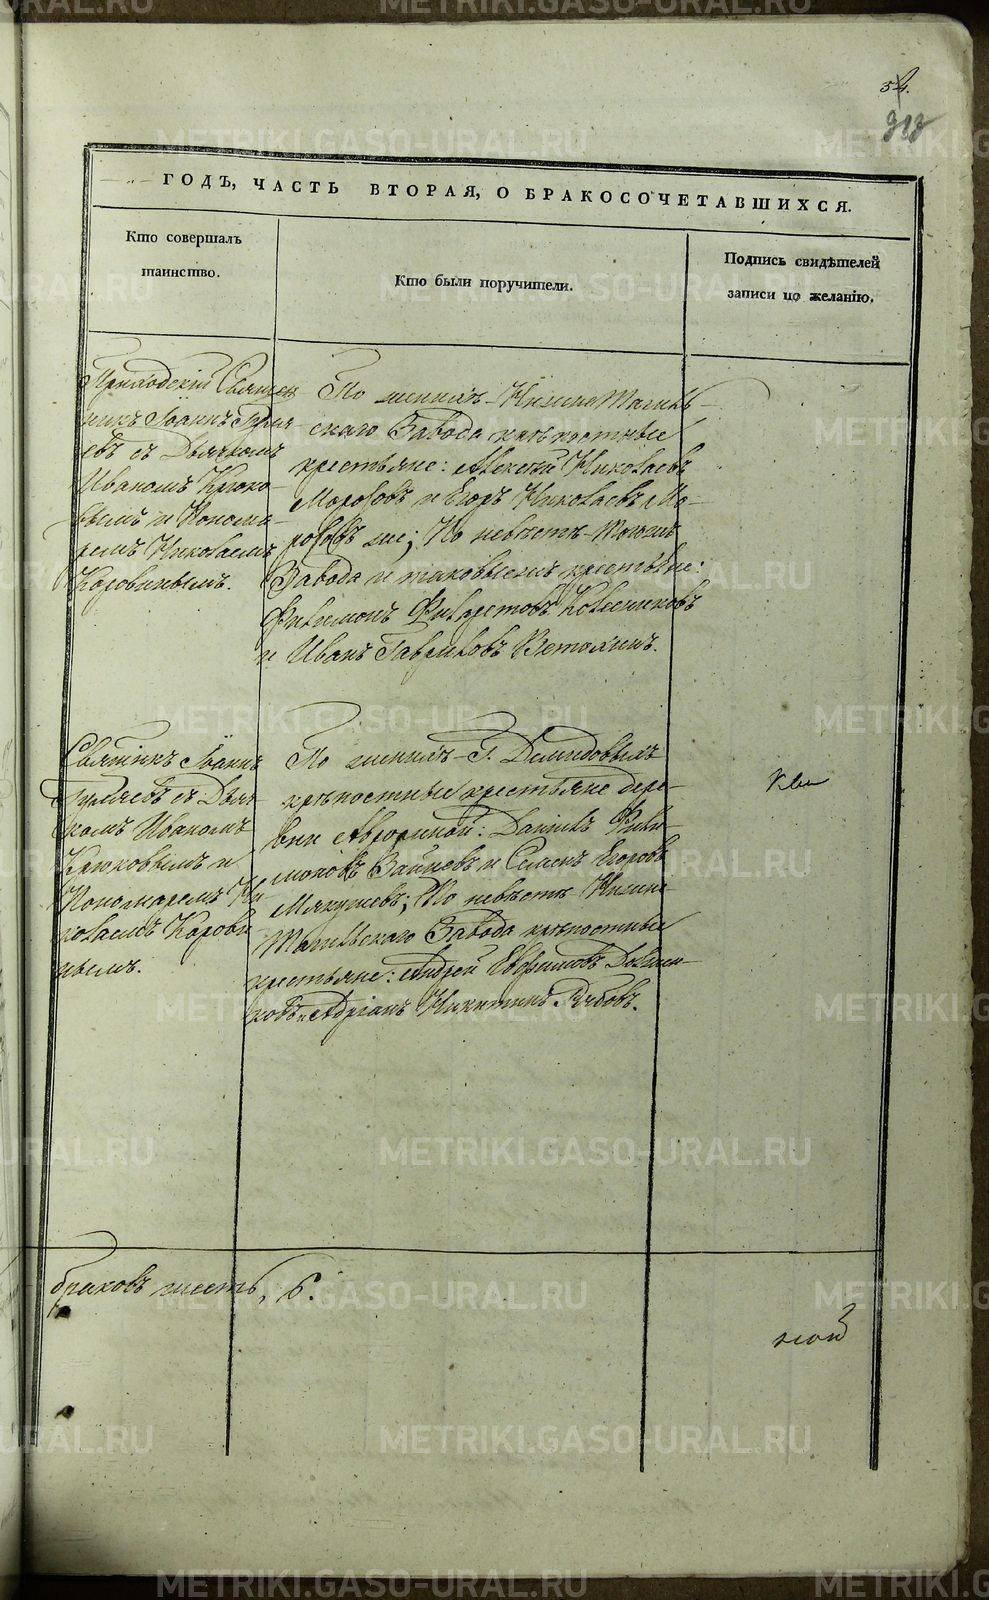 54.
ГОДЪ, ЧАСТЬ ВТОРАЯ, О БРАКОСОЧЕТАВШИХСЯ.
Кто совершалъ
таинство.
Кто были поручители.
Подпись свидѣтелей
записи по желанію.
Приходскій Священ
никъ Іоаннъ
евъ съ Дьячкомъ
Иваномъ Крюко-
вымъ и Понома-
ремъ Николаемъ
Коровинымъ.
По женихѣ Нижне Тагиль-
скаго Завода крѣпостные
крестьяне: Алексѣй Николаевъ
Морозовъ и Егоръ Николаевъ Мо-
розовъ же; По невѣстѣ Тогожъ
Завода и таковыежъ крестьяне:
Филимонъ Филаретовъ Колесниковъ
и Иванъ Гавриловъ Ветошкинъ.
Священникъ Іоаннъ
съ Дьяч-
комъ Иваномъ
Крюковымъ и
Пономаремъ Ни-
колаемъ Корови
нымъ.
По женихѣ Г. Демидовыхъ
крѣпостные крестьяне дере-
вни Авроринной: Даніилъ Фили-
моновъ Зайцевъ и Семенъ Егоровъ
Мякушевъ; По невѣстѣ Нижне
Тагильскаго Завода крѣпостные
крестьяне: Андрей Евфимовъ
и Адріанъ Никитинъ Рябовъ.
браковъ шесть, 6.